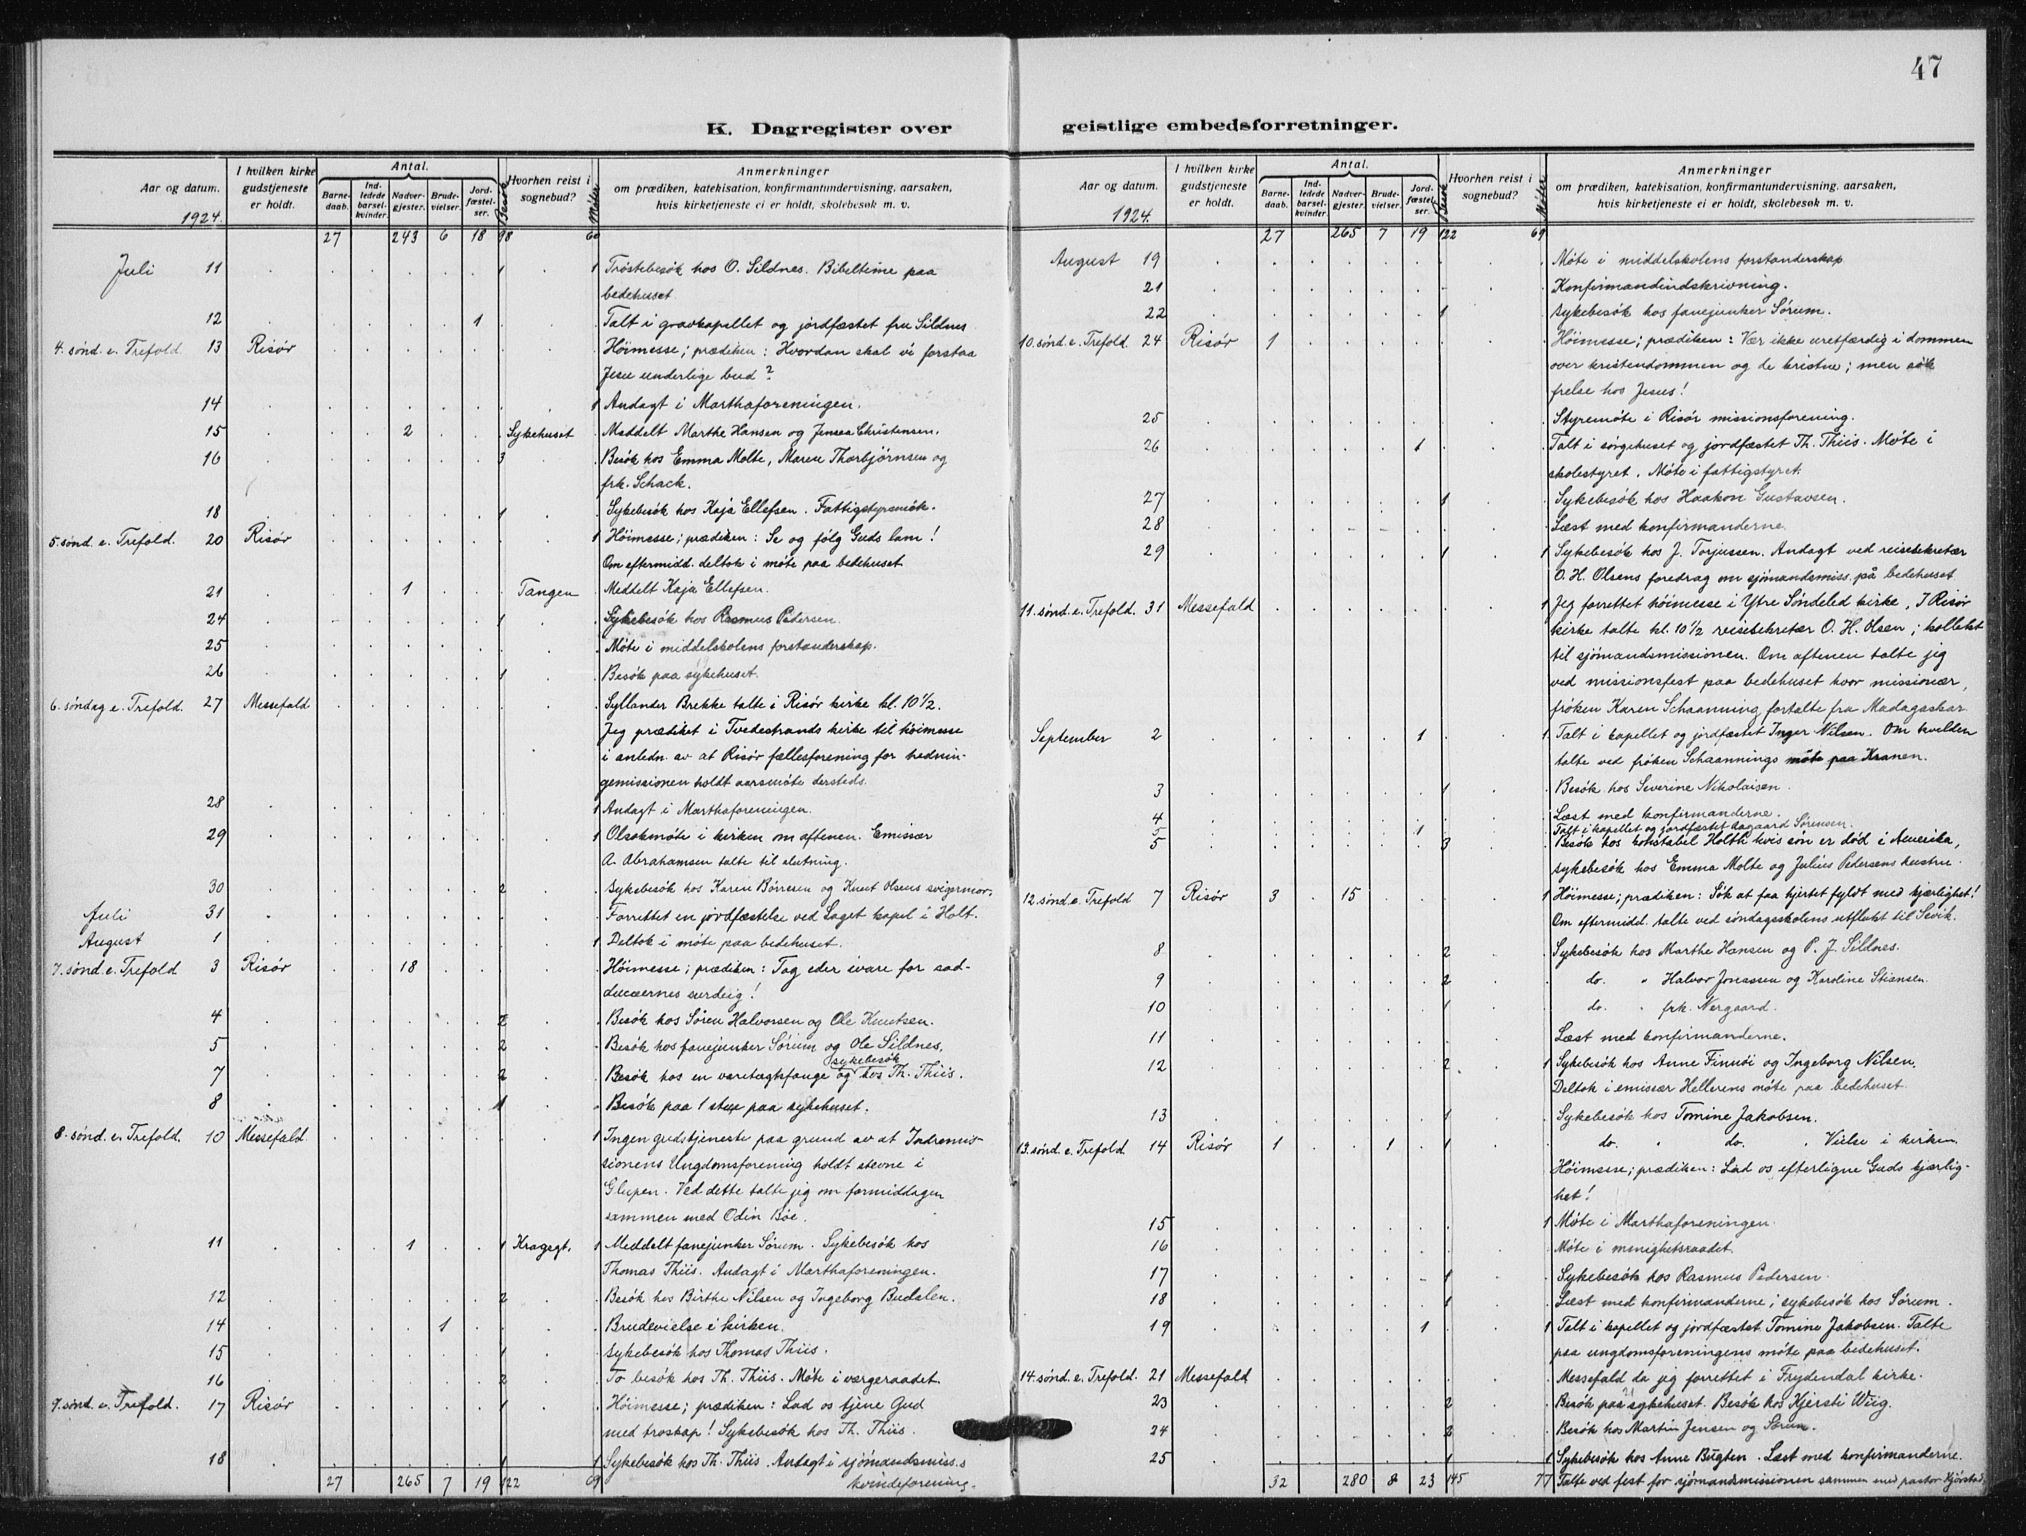 47
K. Dagregister over geistlige embedsforretninger.
Aar og datum. 1924.
I hvilken kirke gudstjeneste er holdt.
Antal.
Barnedaab.
Indledede barselkvinder.
Nadvergjester.
Brudevielser.
Jordfæstelser.
Besøk
Hvorhen reist i sognebud?
Møter
Anmerkninger
om prædiken, katekisation, konfirmantundervisning, aarsaken,
hvis kirketjeneste ei er holdt, skolebesøk m. v.
27 243 6 18 98 60
Juli 11 1 1 Trøstebesøk hos O. Sildnes. Bibeltime paa
bedehuset.
12 1 Talt i gravkapellet og jordfæstet fru Sildnes
4. sønd. e. Trefold. 13 Risør Høimesse; prædiken: Hvordan skal vi forstaa
Jesu underlige bud?
14 1 Andagt i Marthaforeningen.
15 2 Sykehuset Meddelt Marthe Hansen og Jensea Christensen.
16 3 Besøk hos Emma Molte, Maren Thorbjørnsen og
frk. Schack.
18 1 Sykebesøk hos Kaja Ellefsen. Fattigstyremøte.
5. sønd. e. Trefold. 20 Risør 1 Høimesse; prædiken: Se og følg Guds lam!
Om eftermidd. deltok i møte paa bedehuset
21 1 Tangen Meddelt Kaja Ellefsen.
24 1 Sykebesøk hos Rasmus Pedersen.
25 Møte i middelskolens forstanderskap.
26 1 Besøk paa sykehuset.
6. søndag e. Trefold. 27 Messefald Syllander Brekke talte i Risør kirke kl. 10½.
Jeg prædiket i Tvedestrands kirke til høimesse
i anledn. av at Risør fællesforening for hednin-
gemissionen holdt aarsmøte dersteds.
28 1 Andagt i Marthaforeningen.
29 1 Olsokmøte i kirken om aftenen. Emissær
A. Abrahamsen talte til slutning.
30 2 Sykebesøk hos Karen Børresen og Knut Olsens svigermor.
Juli 31 Forrettet en jordfæstelse ved Laget kapel i Holt.
August 1 1 Deltok i møte paa bedehuset.
7. sønd. e. Trefold 3 Risør 18 Høimesse; prædiken: Tag eder ivare for sad-
ducæernes surdeig!
4 2 Besøk hos Søren Halvorsen og Ole Knutsen.
5 2 Besøk hos fanejunker Sørum og Ole Sildnes.
7 2 Besøk hos en varetægtsfange og sykebesøk hos Th. Thiis.
8 1 Besøk paa 1 stue paa sykehuset.
8. sønd. e. Trefold. 10 Messefald. 1 Ingen gudstjeneste paa grund av at Indremis-
sionens Ungdomsforening holdt stevne i
Glupen. Ved dette talte jeg om formiddagen
sammen med Odin Bøe.
11 1 1 Kragsgt. 1 Meddelt fanejunker Sørum. Sykebesøk hos
Thomas Thiis. Andagt i Marthaforeningen.
12 2 Besøk hos Birthe Nilsen og Ingeborg Budalen.
14 1 Brudevielse i kirken.
15 1 Sykebesøk hos Thomas Thiis.
16 2 To besøk hos Th. Thiis. Møte i værgeraadet.
9. sønd. e. Trefold. 17 Risør 1 Høimesse; prædiken: Lad os tjene Gud
med troskap! Sykebesøk hos Th. Thiis.
18 1 1 Sykebesøk hos Th. Thiis. Andagt i sjømandsmiss.s
27 265 7 19 122 69 kvindeforening.
Aar og datum. 1924.
I hvilken kirke gudstjeneste er holdt.
Antal.
Barnedaab.
Indledede barselkvinder.
Nadvergjester.
Brudevielser.
Jordfæstelser.
Besøk
Hvorhen reist i sognebud?
Møter
Anmerkninger
om prædiken, katekisation, konfirmantundervisning, aarsaken,
hvis kirketjeneste ei er holdt, skolebesøk m. v.
27 265 7 19 122 69
August 19 Møte i middelskolens forstanderskap
21 Konfirmandindskrivning.
22 1 Sykebesøk hos fanejunker Sørum.
10. sønd. e. Trefold. 24 Risør 1 Høimesse; prædiken: Vær ikke uretfærdig i dommen
over kristendommen og de kristne; men søk
frelse hos Jesus!
25 Styremøte i Risør missionsforening.
26 1 Talt i sørgehuset og jordfæstet Th. Thiis. Møte i
skolestyret. Møte i fattigstyret.
27 1 Sykebesøk hos Haakon Gustavsen.
28 Læst med konfirmanderne.
29 1 1 Sykebesøk hos J. Torjussen. Andagt ved reisesekretær
O. H. Olsens foredrag om sjømandsmiss. på bedehuset
11. sønd. e. Trefold. 31 Messefald 1 Jeg forrettet høimesse i Ytre Søndeled kirke. I Risør
kirke talte kl. 10½ reisesekretær O. H. Olsen; kollekt
til sjømandsmissionen. Om aftenen talte jeg
ved missionsfest paa bedehuset hvor missionær,
frøken Karen Schaanning fortalte fra Madagaskar
September 2 1 1 Talt i kapellet og jordfæstet Inger Nilsen. Om kvelden
talte ved frøken Schaannings møte paa Kranen.
3 1 Besøk hos Severine Nikolaisen.
4 Læst med konfirmanderne.
5 1 Talt i kapellet og jordfæstet Aagaard Sørensen.
5 3 Besøk hos konstabel Holth hvis søn er død i Amerika,
sykebesøk hos Emma Molte og Julius Pedersens hustru.
12. sønd. e. Trefold 7 Risør 3 15 1 Høimesse; prædiken: Søk at faa hjertet fyldt med kjærlighet!
Om eftermidd. talte ved søndagsskolens utflukt til Sevik.
8 2 Sykebesøk hos Marthe Hansen og P. J. Sildnes.
9 2 do. " Halvor Jonassen og Karoline Stiansen.
10 1 do. " frk. Nergaard.
11 Læst med konfirmanderne.
12 2 1 Sykebesøk hos Anne Finnøi og Ingeborg Nilsen.
Deltok i emissær Hellerens møte paa bedehuset
13 1 Sykebesøk hos Tomine Jakobsen.
13. sønd. e. Trefold. 14 Risør 1 1 1 do. " do. . Vielse i kirken.
Høimesse; prædiken: Lad os efterligne Guds kjærlig-
het!
15 1 Møte i Marthaforeningen
16 Møte i menighetsraadet
17 1 Sykebesøk hos Rasmus Pedersen.
18 1 Læst med konfirmanderne; sykebesøk hos Sørum.
19 1 1 Talt i kapellet og jordfæstet Tomine Jakobsen. Talte
paa ungdomsforeningens møte paa bedehuset.
14. sønd. e. Trefold. 21 Messefald Messefald da jeg forrettet i Frydendal kirke.
23 2 Besøk paa sykehuset. Besøk hos Kjersti Wiig.
24 2 Besøk hos Martin Jensen og Sørum.
25 1 1 Sykebesøk hos Anne Bugten. Læst med konfirmanderne.
32 280 8 23 145 77 Talte ved fest for sjømandsmissionen sammen med pastor Kjørstad